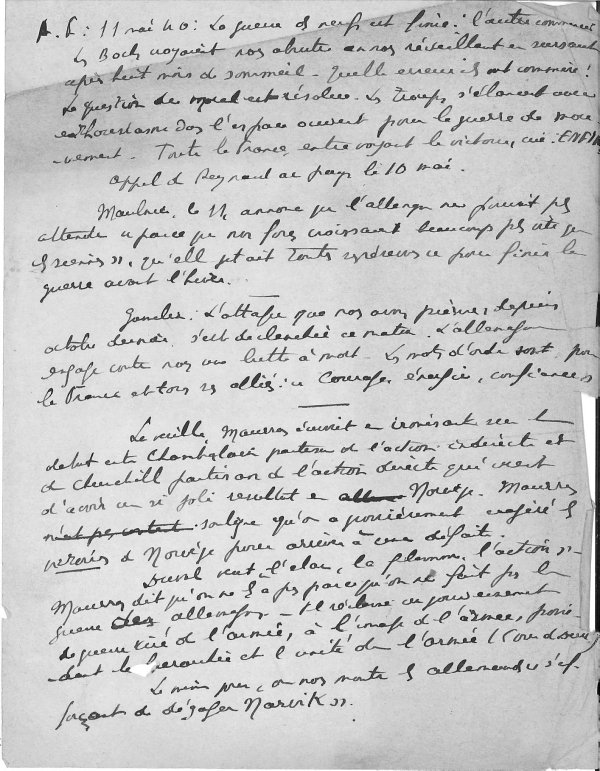 A. F: 11 mai 40: La guerre de nerfs est finie: l'autre commence
Les Boch croyaient nos abrutir en nos réveillant en sursaut
après huit mois de sommeil - Quelle erreur ils ont commise!
La question du moral est résolue. Les troupes s'élancent avec
enthousiasme dans l'espace ouvert pour la guerre de mou
vement. Toute la France, entrevoyant la victoire, crie: ENFIN
appel de Reynaud au pays le 10 mai.
Maulnier, le 11, annonce que l'allemagne ne pouvait pls
attendre "parce que nos forces croissaient beaucoup pls vite que
les siennes", qu'elle jetait toutes ses réserves "pour finir la
guerre avant l'hiver.
Gamelin: L'attaque que nos avons prévue, depuis
octobre dernier, s'est déclenchée ce matin. L'allemagne
engage contre nos une lutte à mort - Les mots d'ordre sont, pour
la France et tous ses alliés: "Courage, énergie, confiance"
La veille, Maurras écrivait en ironisant sur le
débat entre Chamberlain partisan de l'action indirecte et
de Churchill partisan de l'action directe qui vient
d'avoir un si joli résultat en Norvège. Maurras
souligne qu'on a grossièrement exagéré les
de Norvège pour arriver à une défaite.
Duval veut "l'élan, la flamme, l'action"
Maurras dit qu'on ne l'a pas parce qu'on ne fait pas la
guerre aux allemagnes - Il réclame un gouvernement
de guerre tiré de l'armée, à l'image de l'armée, possé-
dant la hiérarchie et l'unité de l'armée
Le même jour, on nos montre les allemands "s'ef-
forçant de dégager Narvik".